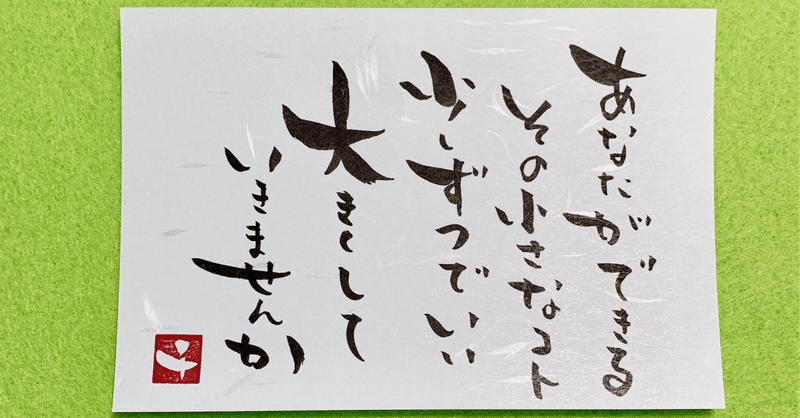 あなたができる
その小さなコト
少しずつでいい
大きくして
いきませんか